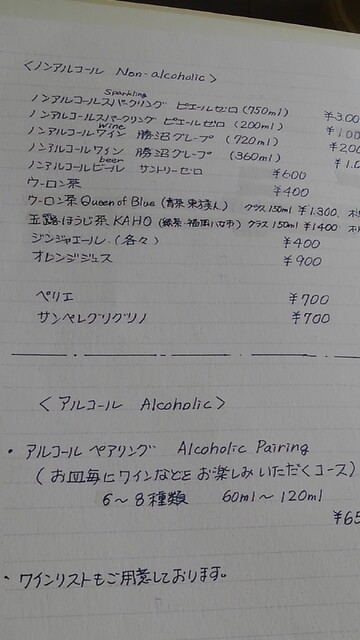 ＜ノンアルコール Non-alcoholic＞
Sparkling
ノンアルコールスパークリング ピエールゼロ(750ml) ¥3,00
ノンアルコールスパークリング ピエールゼロ(200ml) ¥1,00
wine
ノンアルコールワイン 勝沼グレープ (720ml) ¥2,00
ノンアルコールワイン 勝沼グレープ (360ml) ¥1,0
beer
ノンアルコールビール サントリーゼロ ¥600
ウーロン茶 ¥400
ウーロン茶 Queen of Blue (青茶 東方美人) グラス150ml ¥1,300.
玉露ほうじ茶 KAHO (緑茶・福岡八女市) グラス150ml ¥1400
ジンジャエール.(各々) ¥400
オレンジジュース ¥900
ペリエ ¥700
サンペレグリグリノ ¥700
＜アルコール Alcoholic＞
・アルコール ペアリング Alcoholic Pairing
(お皿毎にワインなどを お楽しみいただくコース)
6〜8種類 60ml〜120ml
¥65
・ワインリストもご用意しております。